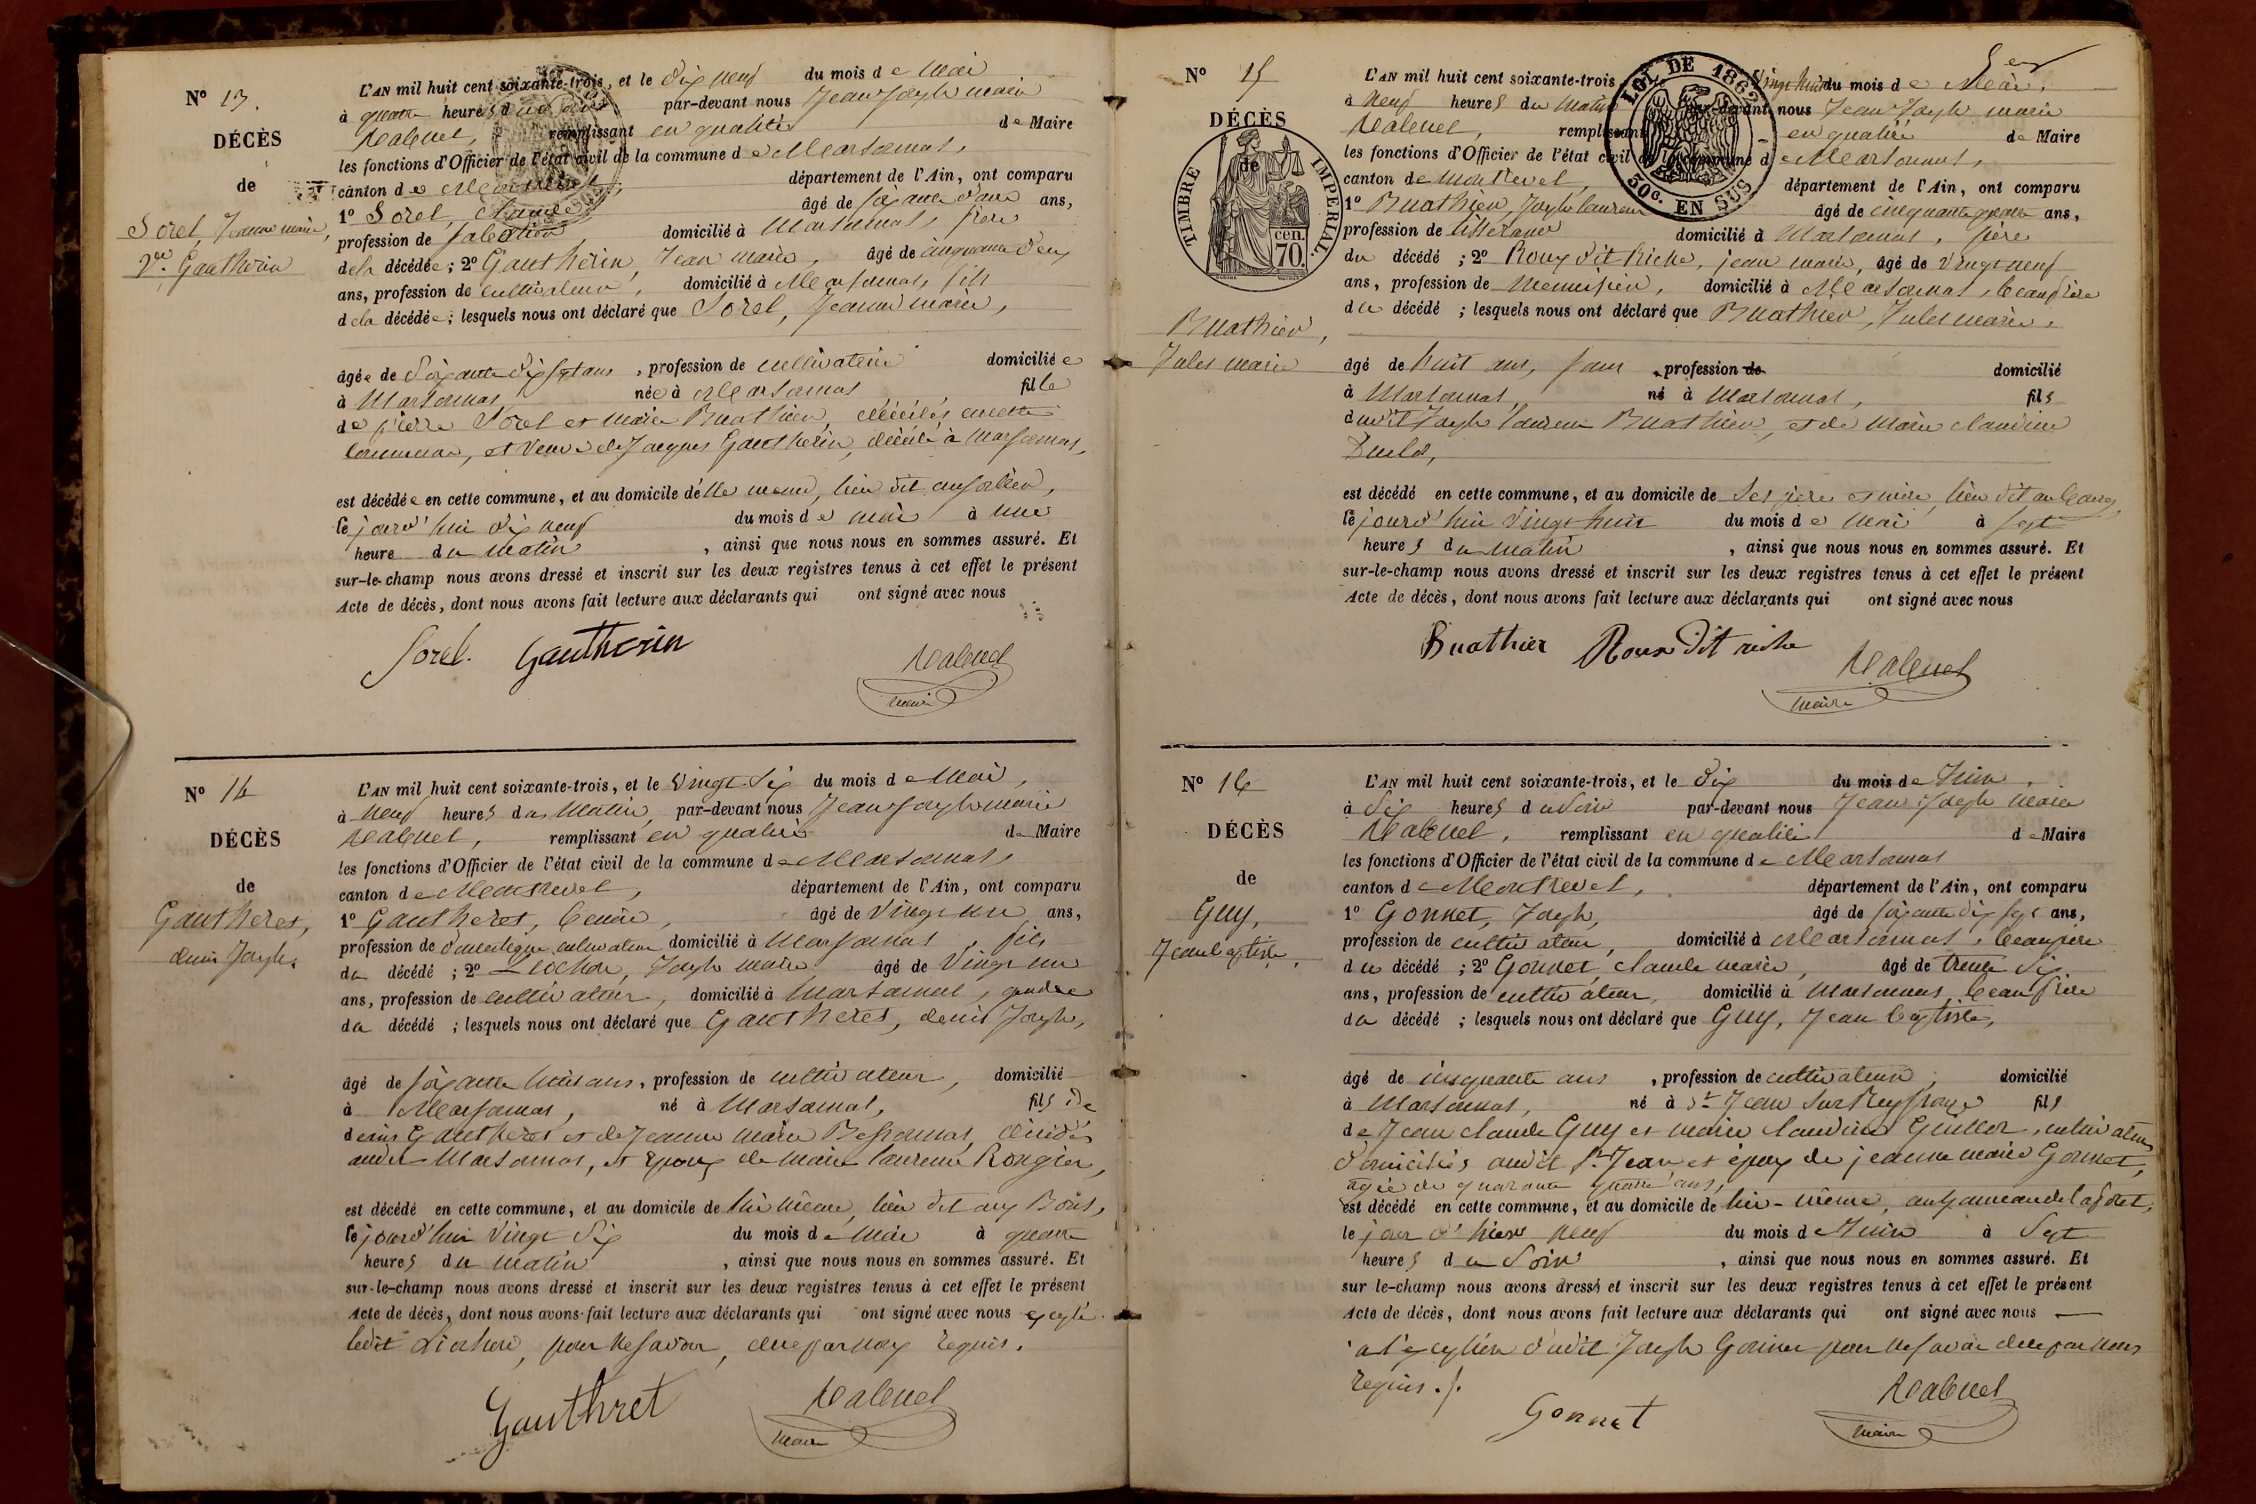 N° 13.
DÉCÈS
de
Sorel, Jeanne marie,
Vve Gautherin
L'AN mil huit cent soixante-trois, et le dix neuf du mois de Mai
à quatre heures du par-devant nous Jean Joseph marie
remplissant en qualité de Maire
les fonctions d'Officier de l'état civil de la commune de Marsonnas,
canton de Montrevel, département de l'Ain, ont comparu
1° Sorel, Claude âgé de soixante ans,
profession de domicilié à Marsonnas, frère
de la décédée; 2° Gautherin, Jean marie, âgé de cinquante deux
ans, profession de cultivateur, domicilié à Marsonnas, fils
de la décédée; lesquels nous ont déclaré que Sorel, Jeanne marie,
âgée de soixante dix sept ans, profession de cultivateur domiciliée
à Marsonnas née à Marsonnas fille
de pierre Sorel et marie Buathier, décédés en cette
commune, et veuve de Jacques Gautherin, décédé à Marsonnas,
est décédée en cette commune, et au domicile d'elle même, lieu dit
le jourd'hui dix neuf du mois de mai à une
heure du matin, ainsi que nous nous en sommes assuré. Et
sur-le-champ nous avons dressé et inscrit sur les deux registres tenus à cet effet le présent
Acte de décès, dont nous avons fait lecture aux déclarants qui ont signé avec nous
Sorel. Gautherin
maire
N° 14
DÉCÈS
de
Gautheret,
denis Joseph.
L'AN mil huit cent soixante-trois, et le vingt six du mois de Mai,
à neuf heures du Matin par-devant nous Jean Joseph marie
remplissant en qualité de Maire
les fonctions d'Officier de l'état civil de la commune de Marsonnas,
canton de Montrevel, département de l'Ain, ont comparu
1° Gautheret, âgé de vingt un ans,
profession de domestique cultivateur domicilié à Marsonnas, fils
du décédé; 2° Liochon, Joseph marie âgé de vingt un
ans, profession de cultivateur, domicilié à Marsonnas, gendre
du décédé; lesquels nous ont déclaré que Gautheret, denis Joseph,
âgé de soixante huit ans, profession de cultivateur, domicilié
à Marsonnas, né à Marsonnas, fils de
denis Gautheret et de Jeanne marie décédés
audit Marsonnas, et époux de marie laurence Rongier,
est décédé en cette commune, et au domicile de lui même, lieu dit aux Bois,
le jourd'hui vingt six du mois de Mai à quatre
heures du matin, ainsi que nous nous en sommes assuré. Et
sur-le-champ nous avons dressé et inscrit sur les deux registres tenus à cet effet le présent
Acte de décès, dont nous avons fait lecture aux déclarants qui ont signé avec nous excepté
ledit Liochon, pour ne savoir, de ce par nous requis.
Gauthret
maire
N° 15
DÉCÈS
de
TIMBRE IMPERIAL.
70. cen.
LOI DE 1862
50c. EN SUS
Buathier,
Jules marie
L'AN mil huit cent soixante-trois vingt huit du mois de Mai,
à Neuf heures du Matin par-devant nous Jean Joseph marie
remplissant en qualité de Maire
les fonctions d'Officier de l'état civil de la commune de Marsonnas,
canton de Montrevel, département de l'Ain, ont comparu
1° Buathier, Joseph laurent âgé de cinquante quatre ans,
profession de domicilié à Marsonnas, père
du décédé; 2° Roux dit Riche, jean marie, âgé de vingt neuf
ans, profession de Menuisier, domicilié à Marsonnas, beau frère
du décédé; lesquels nous ont déclaré que Buathier, Jules marie,
âgé de huit ans, sans profession de domicilié
à Marsonnas, né à Marsonnas, fils
dudit Joseph laurent Buathier, et de Marie claudine
est décédé en cette commune, et au domicile de ses père et mère, lieu dit au bourg,
le jourd'hui vingt huit du mois de Mai à sept
heures du matin, ainsi que nous nous en sommes assuré. Et
sur-le-champ nous avons dressé et inscrit sur les deux registres tenus à cet effet le présent
Acte de décès, dont nous avons fait lecture aux déclarants qui ont signé avec nous
Buathier Roux dit riche
Maire
N° 16
DÉCÈS
de
Guy,
Jean baptiste,
L'AN mil huit cent soixante-trois, et le dix du mois de Juin,
à Six heures du soir par-devant nous Jean Joseph marie
remplissant en qualité de Maire
les fonctions d'Officier de l'état civil de la commune de Marsonnas
canton de Montrevel, département de l'Ain, ont comparu
1° Gonnet, Joseph, âgé de soixante dix sept ans,
profession de cultivateur, domicilié à Marsonnas, beau père
du décédé; 2° Gonnet, claude marie, âgé de trente six
ans, profession de cultivateur, domicilié à Marsonnas, beau frère
du décédé; lesquels nous ont déclaré que Guy, Jean baptiste,
âgé de cinquante ans, profession de cultivateur, domicilié
à Marsonnas, né à St Jean sur Reyssouze fils
de Jean claude Guy et marie claudine cultivateurs
domiciliés audit St Jean, et époux de jeanne marie Gonnet,
agée de quarante quatre ans,
est décédé en cette commune, et au domicile de lui-même, au hameau de laforet,
le jour d'hier neuf du mois de Juin à Sept
heures du Soir, ainsi que nous nous en sommes assuré. Et
sur le-champ nous avons dressé et inscrit sur les deux registres tenus à cet effet le présent
Acte de décès, dont nous avons fait lecture aux déclarants qui ont signé avec nous
à l'exception dudit Joseph Gonnet pour ne savoir de ce par nous
requis.
Gonnet
maire